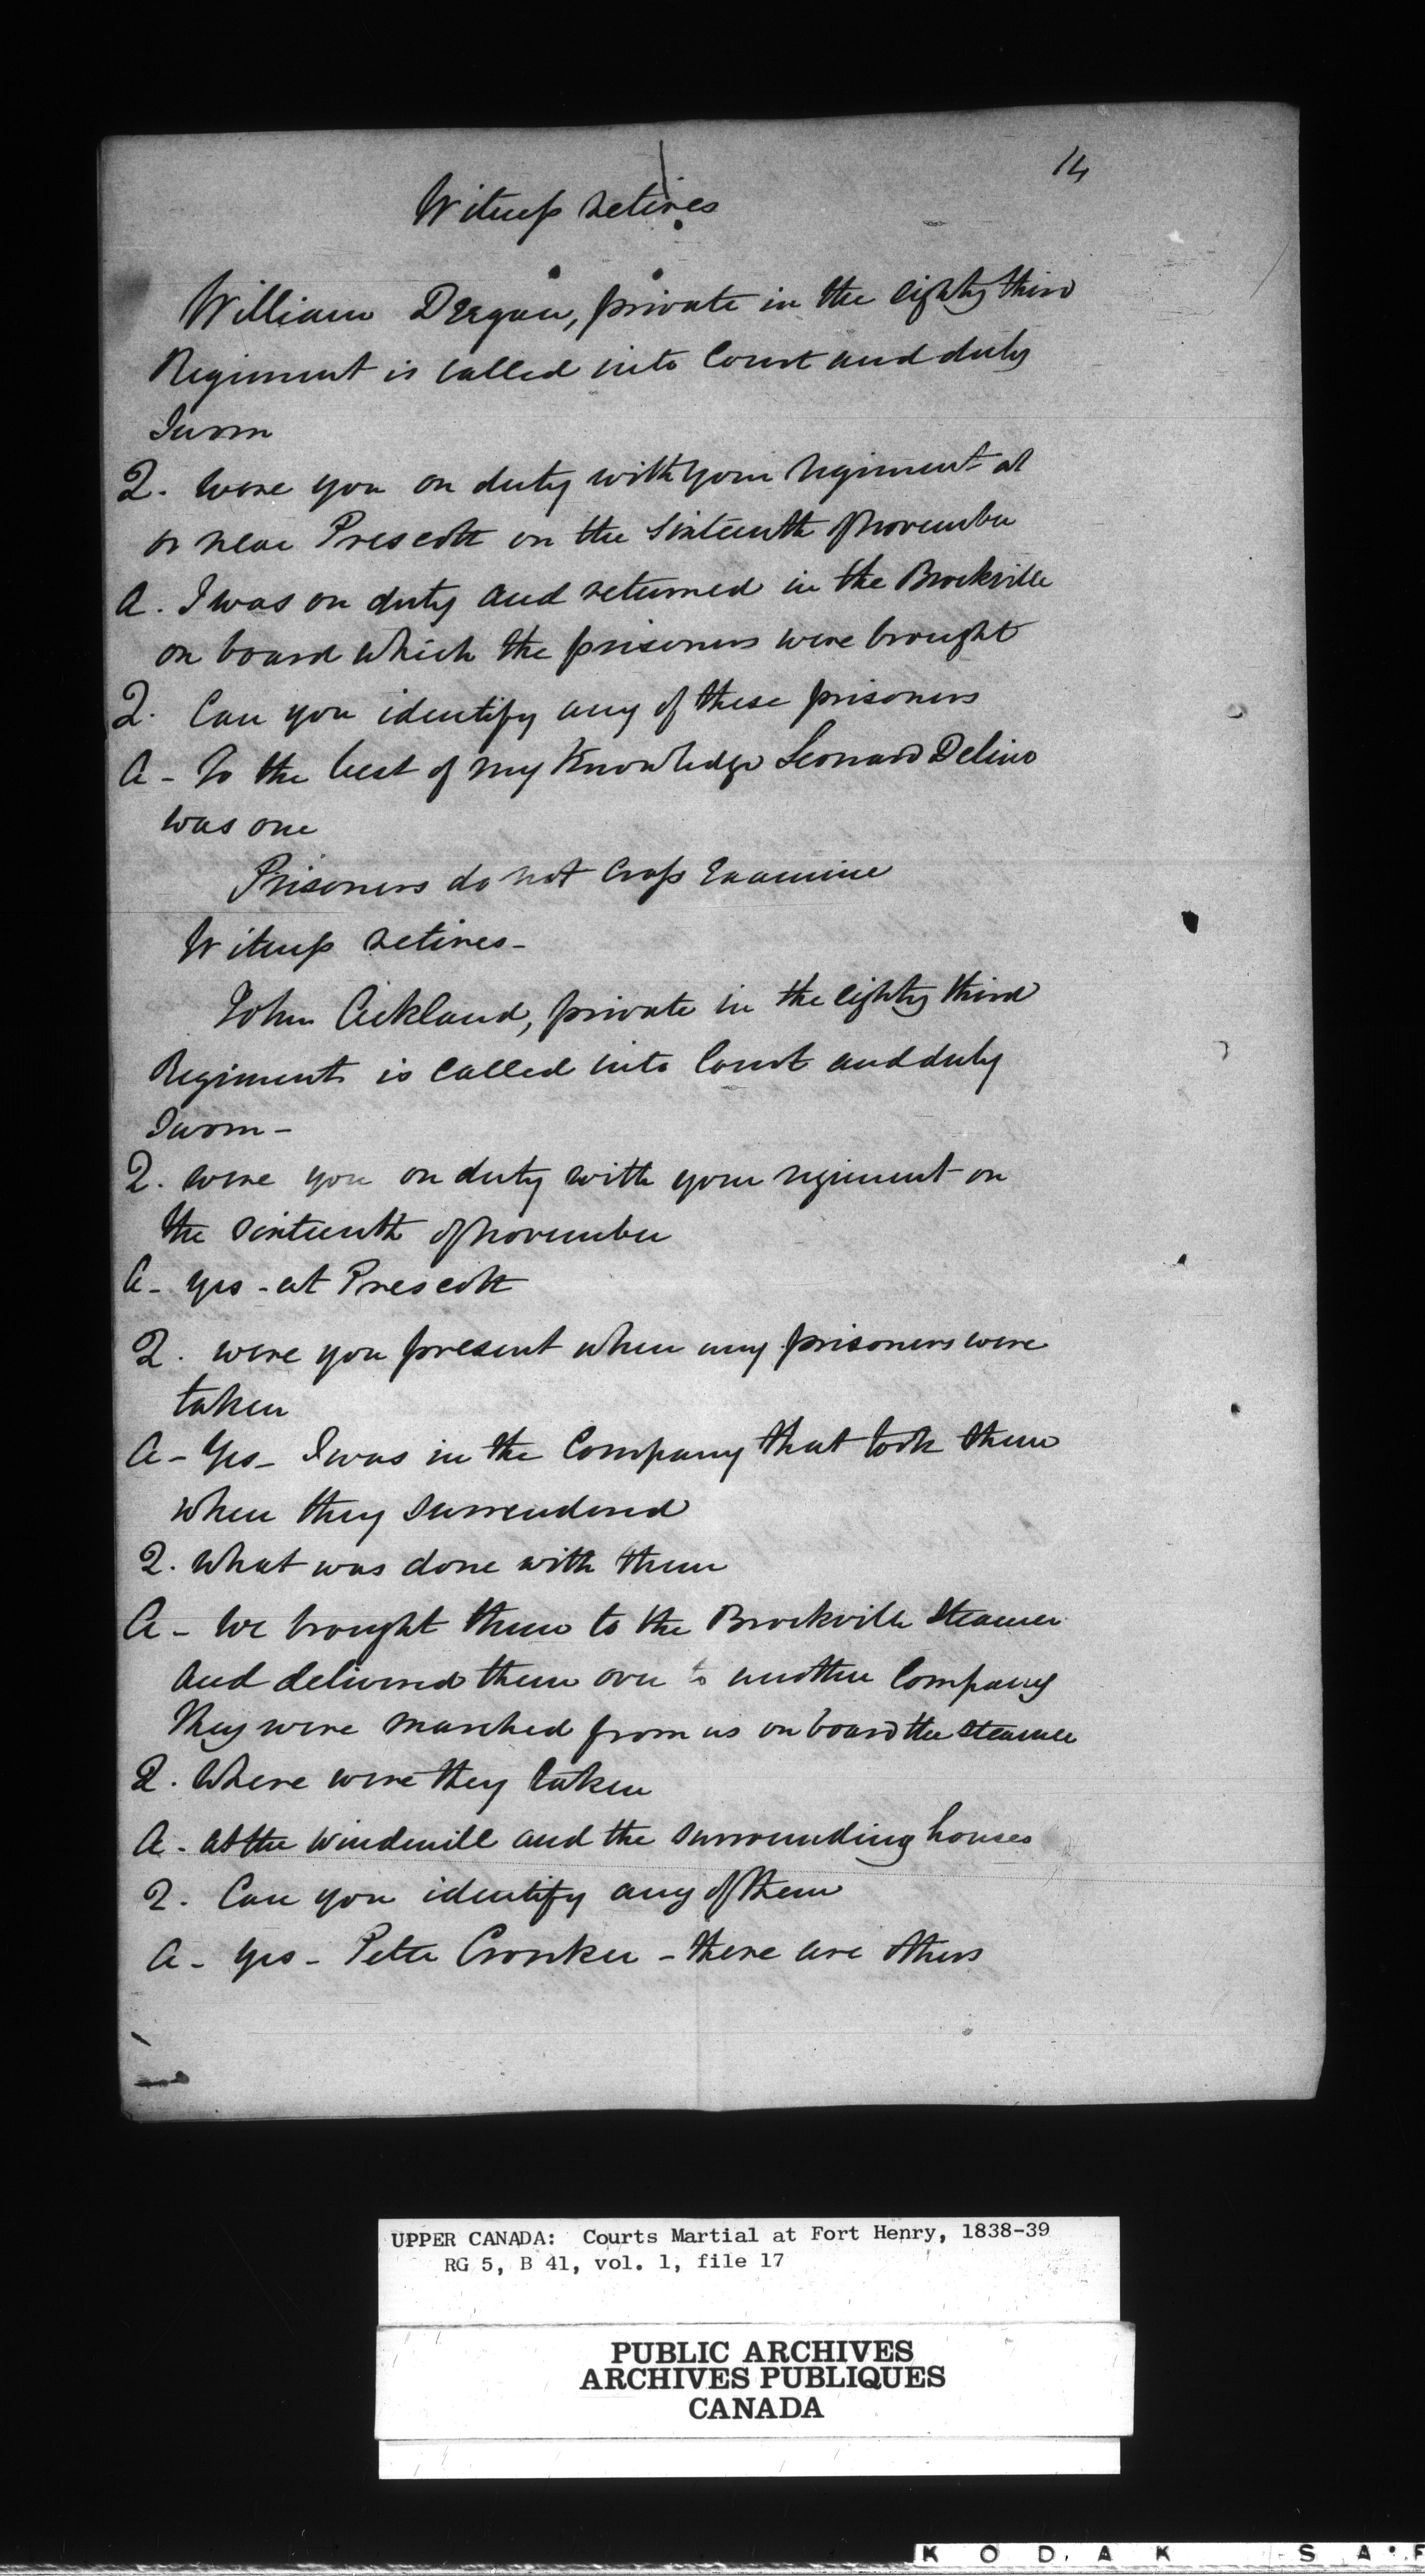 14
Witness retires
William Deegan, private in the eighty third
Regiment is called into Court and duly
Sworn
Q. Were you on duty with your regiment at
or near Prescott on the sixteenth of november
A. I was on duty and returned in the Brockville
on board which the prisoners were brought
Q. Can you identify any of these prisoners
A - To the best of my Knowledge Leonard Delino
was one
Prisoners do not Cross Examine
Witness retires -
John Ackland, private in the eighty third
Regiment is called into Court and duly
Sworn -
Q. were you on duty with your regiment on
the sixteenth of november
A - yes - at Prescott
Q. were you present when any prisoners were
taken
A - Yes - I was in the Company that took them
when they surrendered
Q. What was done with them
A - We brought them to the Brockville Steamer
and delivered them over to another Company
They were marched from us on board the steamer
Q. Where were they taken
A - at the windmill and the surrounding houses
Q. Can you identify any of them
A - yes - Peter Cronker - there are others
UPPER CANADA: Courts Martial at Fort Henry, 1838-39
RG 5, B 41, vol. 1, file 17
PUBLIC ARCHIVES
ARCHIVES PUBLIQUES
CANADA
KODAK SA·F